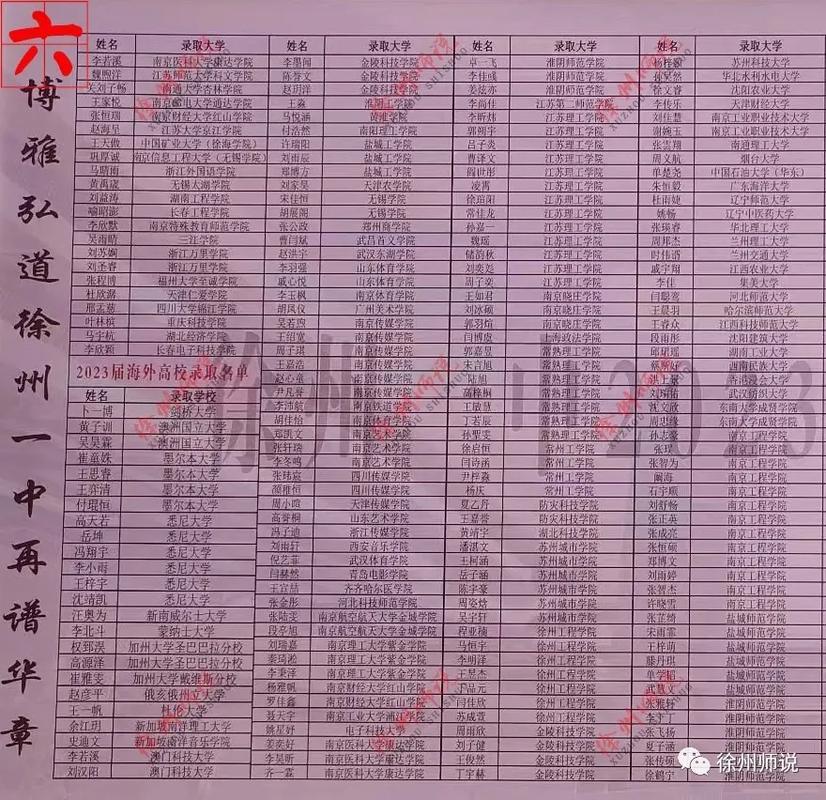 六
博雅弘道徐州一中再谱华章
姓名 录取大学
李若溪 南京医科大学康达学院
魏煦洋 江苏师范大学科文学院
关刘子畅 南通大学杏林学院
王家悦 南京邮电大学通达学院
张恒瑞 南京财经大学红山学院
赵海呈 江苏大学京江学院
王天傲 中国矿业大学（徐海学院）
巩厚诚 南京信息工程大学（无锡学院）
马晴雨 浙江外国语学院
黄禹宬 无锡太湖学院
刘益涛 湖南工程学院
喻昭澎 长春工程学院
李欣默 南京特殊教育师范学院
吴雨晴 三江学院
刘苏娴 浙江万里学院
刘圣睿 浙江万里学院
张程博 福州大学至诚学院
杜欣潞 天津仁爱学院
邢孟薏 四川大学锦江学院
叶林槟 重庆科技学院
马宇杭 湖北经济学院
李欣颖 长春电子科技学院
2023届海外高校录取名单
姓名 录取学校
卜一博 剑桥大学
黄子训 澳洲国立大学
吴昊霖 澳洲国立大学
崔童姝 墨尔本大学
王思睿 墨尔本大学
王弈清 墨尔本大学
付琨恒 墨尔本大学
高天若 悉尼大学
岳坤 悉尼大学
冯翔宇 悉尼大学
李小雨 悉尼大学
王梓宇 悉尼大学
沈靖凯 悉尼大学
汪奥为 新南威尔士大学
李北斗 蒙纳士大学
权郅淏 加州大学圣巴巴拉分校
高源泽 加州大学圣巴巴拉分校
崔雅雯 加州大学戴维斯分校
赵彦平 俄亥俄州立大学
王一帆 杜伦大学
余江玥 新加坡南洋理工大学
史迪文 新加坡南洋音乐学院
李若溪 澳门科技大学
刘汉阳 澳门科技大学
姓名 录取大学
李墨闻 金陵科技学院
陈誉文 金陵科技学院
赵玥洋 金陵科技学院
王淼 淮阴工学院
马悦涵 黄淮学院
付浩然 南阳理工学院
许瑞阳 盐城工学院
刘雨辰 盐城工学院
郑博方 盐城工学院
刘家昊 天津农学院
宋佳恒 无锡学院
胡展阁 无锡学院
张公政 郑州商学院
曹闫斌 武昌首义学院
赵洪宇 武汉东湖学院
李羽强 山东体育学院
戚心悦 山东体育学院
李玉枫 南京体育学院
胡凤仪 广州美术学院
吴若煦 南京传媒学院
王绍宽 南京传媒学院
周子琪 南京传媒学院
王嘉浩 南京传媒学院
赵心童 南京传媒学院
尹凡誉 南京传媒学院
李沛航 南京铁道学院
胡佳怡 南京体育学院
郑凯文 南京艺术学院
张轩瑞 南京艺术学院
李冬鸣 南京艺术学院
张玮宸 四川传媒学院
颜稚恒 四川传媒学院
周小璐 天津传媒学院
高誉桐 山东艺术学院
冯子迪 浙江传媒学院
刘雨轩 西安音乐学院
倪艺菲 武汉体育学院
闫赫然 青岛电影学院
王宣品 齐齐哈尔医学院
张金彤 河北科技师范学院
张陆雯 南京航空航天大学金城学院
段亭旭 南京航空航天大学金城学院
刘瑞嘉 南京理工大学紫金学院
秦琦淞 南京理工大学紫金学院
李秉泽 南京理工大学紫金学院
杨雅帆 南京财经大学红山学院
罗佳鑫 南京财经大学红山学院
聂天宇 南京工业大学浦江学院
姚星妤 电子科技大学
姜奕好 南京医科大学康达学院
李昊昕 南京医科大学康达学院
齐一霖 南京医科大学康达学院
姓名 录取大学
卓一飞 淮阴师范学院
李佳彧 淮阴师范学院
姜炫亦 淮阴师范学院
李尚佳 江苏第二师范学院
李昕炜 江苏理工学院
郭朔宇 江苏理工学院
吕子炎 江苏理工学院
曹译文 江苏理工学院
阎世彤 江苏理工学院
凌霄 江苏理工学院
徐珀阳 江苏理工学院
常佳龙 江苏理工学院
孙嘉一 江苏理工学院
魏瑶 江苏理工学院
储韵秋 江苏理工学院
刘奕迤 江苏理工学院
周子奕 江苏理工学院
王如君 南京晓庄学院
刘冰硕 南京晓庄学院
郭羽煊 南京晓庄学院
闫博虞 上海政法学院
郭嘉昱 常熟理工学院
宋言旭 常熟理工学院
陆旭 常熟理工学院
高梓桐 常熟理工学院
王敏慧 常熟理工学院
丁若辰 常熟理工学院
孙聖雯 常熟理工学院
徐启恒 常州工学院
闫诗涵 常州工学院
尹梓淼 常州工学院
杨庆 常州工学院
夏乙丹 防灾科技学院
王嘉誉 防灾科技学院
黄靖宇 湖北科技学院
潘湛文 苏州城市学院
王柯涵 苏州城市学院
岳子涵 苏州城市学院
陈宇豪 苏州城市学院
周姿焓 苏州城市学院
吴宇轩 苏州城市学院
程亚楠 徐州工程学院
马恒宇 徐州工程学院
李明泽 徐州工程学院
王昱杰 徐州工程学院
王品元 徐州工程学院
闫佳欣 徐州工程学院
苏成萱 徐州工程学院
周雨欣 金陵科技学院
刘子健 金陵科技学院
王俊然 金陵科技学院
丁宇赫 金陵科技学院
姓名 录取大学
杨梓毅 苏州科技大学
孙昊然 华北水利水电大学
徐文睿 沈阳农业大学
李传乐 天津财经大学
刘佳慧 南京工业职业技术大学
谢婉玉 南京工业职业技术大学
张雲翔 南通理工大学
周文航 烟台大学
单楚尧 中国石油大学（华东）
朱恒毅 广东海洋大学
杜雨婕 辽宁师范大学
姚畅 辽宁中医药大学
张瑛睿 华北理工大学
周邦杰 兰州理工大学
时伟谞 兰州交通大学
戚宇翔 江西农业大学
李佳 集美大学
闫聪骞 河北师范大学
王晨羽 哈尔滨师范大学
王睿众 江西科技师范大学
段雨彤 沈阳建筑大学
邱珺瑶 湖南工业大学
西南民族大学
洪上景 香港浸会大学
刘瑞佑 武汉纺织大学
沈文欣 东南大学成贤学院
周忠缘 东南大学成贤学院
孙志豪 南京工程学院
张璟 南京工程学院
张智为 南京工程学院
阚海 南京工程学院
石宇顺 南京工程学院
刘舒畅 南京工程学院
张正英 南京工程学院
张成亮 南京工程学院
张恒硕 南京工程学院
郑博文 南京工程学院
刘雨婷 南京工程学院
张智杰 南京工程学院
许晓雪 南京工程学院
张芷绮 盐城师范学院
宋雨霏 盐城师范学院
王梓萌 盐城师范学院
滕丹琪 盐城师范学院
单学韬 盐城师范学院
武慧文 盐城师范学院
张雅轩 淮阴师范学院
李大丁 淮阴师范学院
张飞扬 淮阴师范学院
夏子涵 淮阴师范学院
张传硕 淮阴师范学院
徐鹤宁 淮阴师范学院
徐州一中2023
徐州师说
XUZHOU SHISHUO
徐州师说